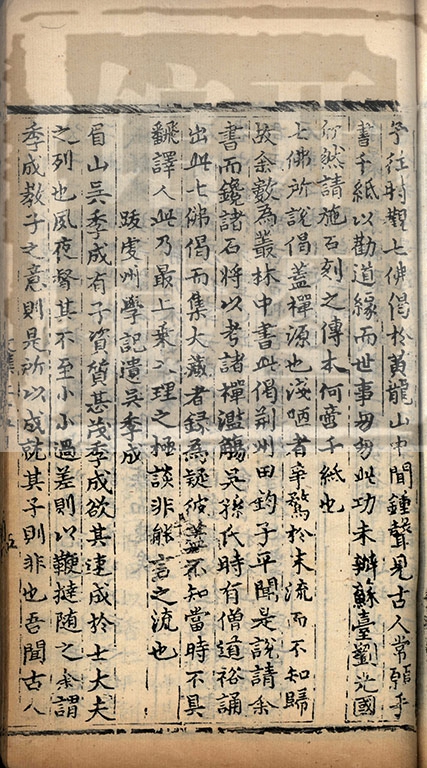 予往時觀七佛偈於黃龍山中聞鍾聲見古人常願手
書千紙以勸道緣而世事匆匆此功未辦蘇臺劉光國
欣然請施石刻之傳本何啻千紙也
七佛所說偈蓋禪源也淺陋者爭鶩於末流而不知歸
故余數為叢林中書此偈荊州田鈞子平聞是說請余
書而鑱諸石將以考諸禪濫觴吳孫氏時有僧道裕誦
出此七佛偈而集大藏者録為疑彼蓋不知當時不具
飜譯人此乃最上乘入理之極談非能言之流也
跋虔州學記遺吳季成
眉山吳季成有子資質甚茂季成欲其速成於士大夫
之列也夙夜督其不至小小過差則以鞭撻随之余謂
季成教子之意則是所以成就其子則非也吾聞古人